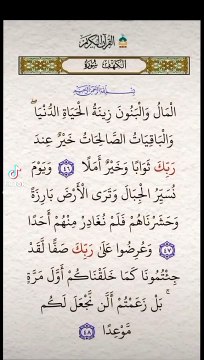 القرآن الكريم
سورة الكهف
بسم الله الرحمن الرحيم
الْمَالُ وَالْبَنُونَ زِينَةُ الْحَيَاةِ الدُّنْيَا ۖ
وَالْبَاقِيَاتُ الصَّالِحَاتُ خَيْرٌ عِندَ
رَبِّكَ ثَوَابًا وَخَيْرٌ أَمَلًا ﴿٤٦﴾ وَيَوْمَ
نُسَيِّرُ الْجِبَالَ وَتَرَى الْأَرْضَ بَارِزَةً
وَحَشَرْنَاهُمْ فَلَمْ نُغَادِرْ مِنْهُمْ أَحَدًا
﴿٤٧﴾ وَعُرِضُوا عَلَىٰ رَبِّكَ صَفًّا لَّقَدْ
جِئْتُمُونَا كَمَا خَلَقْنَاكُمْ أَوَّلَ مَرَّةٍ
ۚ بَلْ زَعَمْتُمْ أَلَّن نَّجْعَلَ لَكُم
مَّوْعِدًا ﴿٤٨﴾